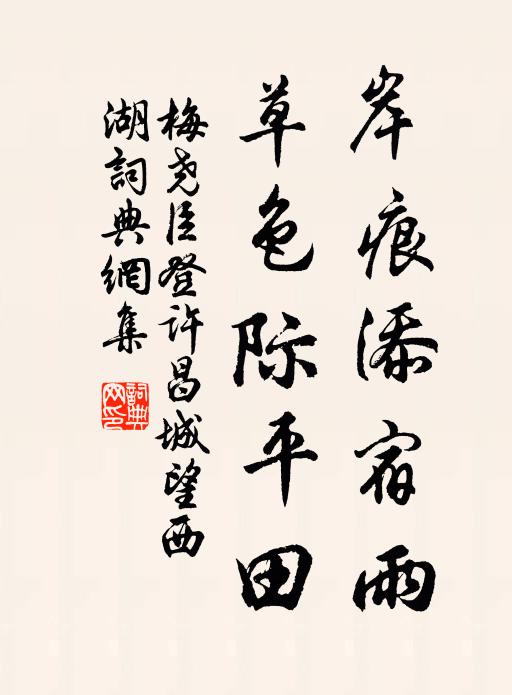 岸痕添宿雨
草色际平田
梅尧臣登许昌城望西
湖詞典網集
詞典
网印